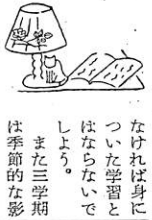 なければ身に
ついた学習と
はならないで
しょう。
また三学期
は季節的な影